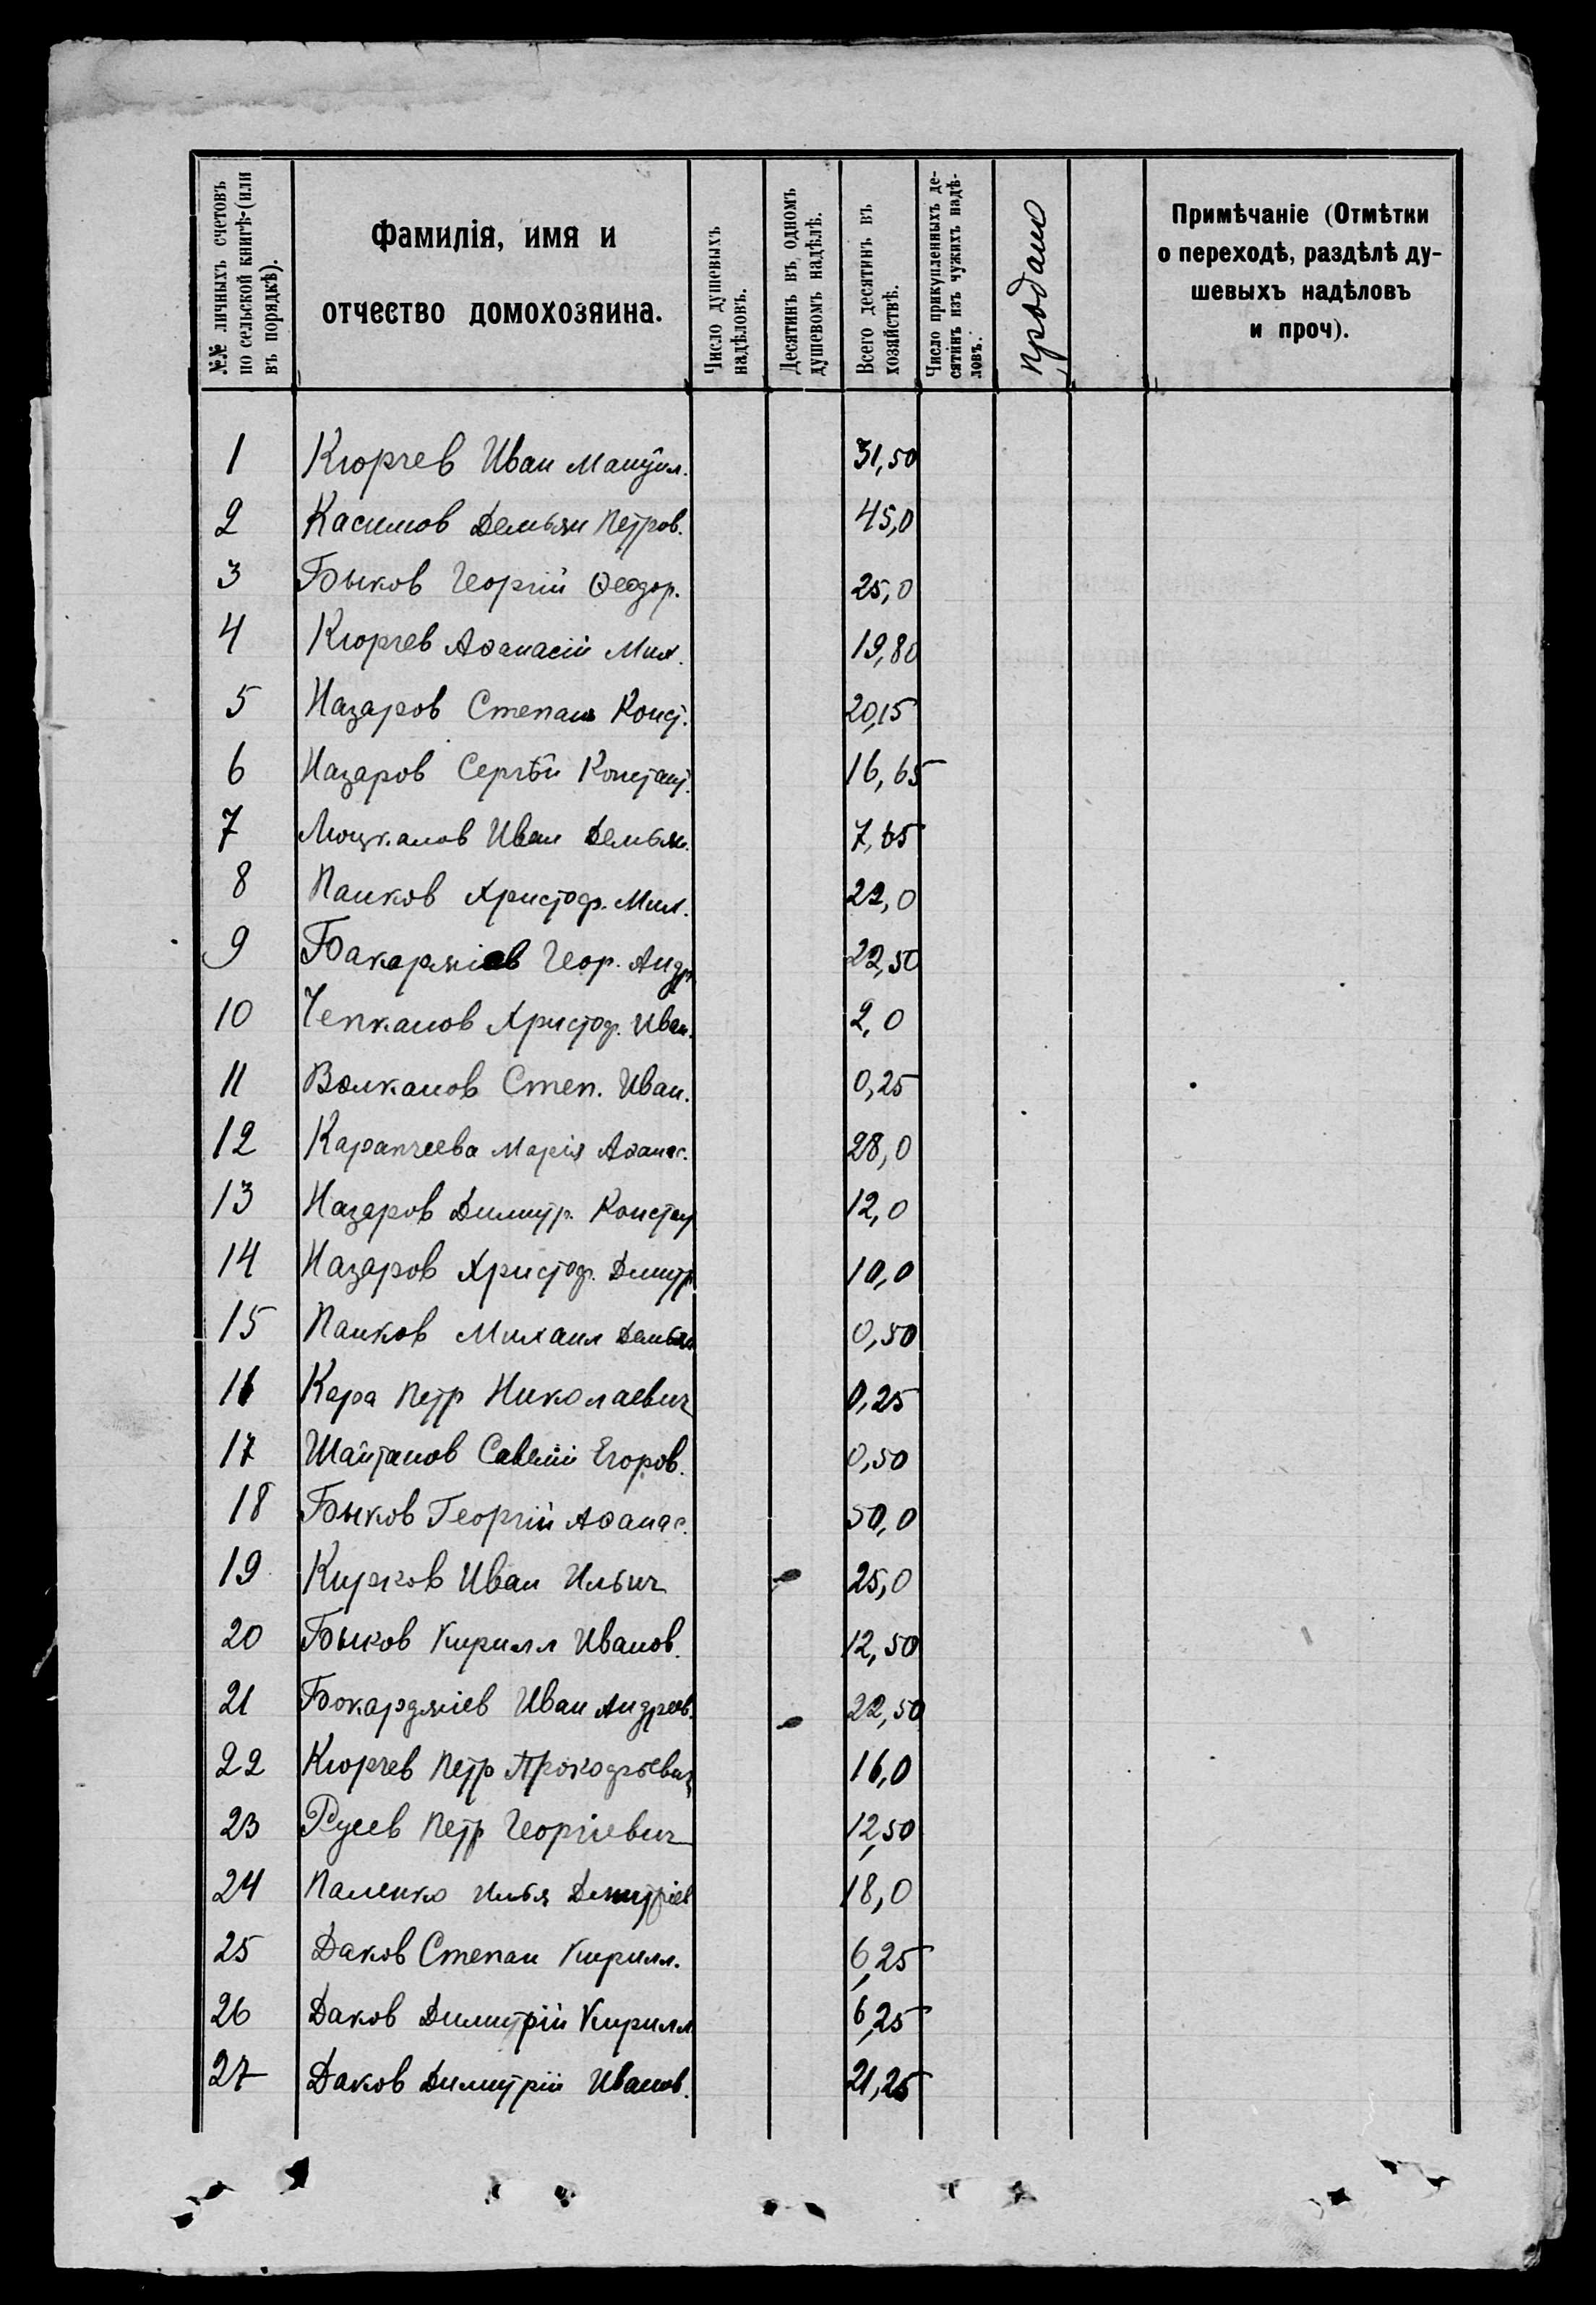 №№ личныхъ счетовъ
по сельской книгѣ-(или
въ порядкѣ).
Фамилія, имя и
отчество домохозяина.
Число душевыхъ
надѣловъ.
Десятинъ въ одномъ
душевомъ надѣлѣ.
Всего десятинъ въ
хозяйствѣ.
Число прикупленныхъ де-
сятинъ изъ чужихъ надѣ-
ловъ.
продано
Примѣчаніе (Отмѣтки
о переходѣ, раздѣлѣ ду-
шевыхъ надѣловъ
и проч).
1 Кюрчев Иван Мануил. 31,50
2 Касимов Демьян Петров. 45,0
3 Быков Георгій Ѳеодор. 25,0
4 Кюрчев Аѳанасій Мих. 19,80
5 Назаров Степан Конст. 20,15
6 Назаров Сергѣй Констант. 16,65
7 Иван Демьян. 7,65
8 Панков Христоф. Мих. 22,0
9 Геор. Андр. 22,50
10 Чепканов Христоф. Иван. 2,0
11 Волканов Степ. Иван. 0,25
12 Карапчеева Марія Аѳанас. 28,0
13 Назаров Димитр. Констан 12,0
14 Назаров Христоф. Димитр 10,0
15 Панков Михаил Демьян 0,50
16 Кара Петр Николаевич 0,25
17 Шайтанов Савелій Егоров. 0,50
18 Быков Георгій Аѳанас. 50,0
19 Иван Ильич 25,0
20 Быков Кирилл Иванов. 12,50
21 Бокарджіев Иван Андреев. 22,50
22 Кюрчев Петр Прокофьевич 16,0
23 Русев Петр Георгіевич 12,50
24 Паленко Илья Димитріев 18,0
25 Даков Степан Кирилл. 6,25
26 Даков Димитрій Кирилл 6,25
27 Даков Димитрій Иванов. 21,25